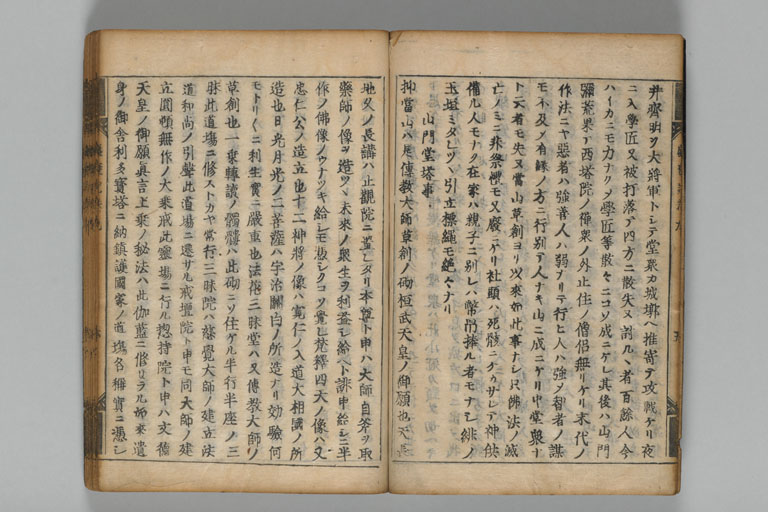 井齊明ヲ大將軍トシテ堂衆カ城墎ヘ推寄テ攻戰ケリ夜
ニ入學匠又被打落テ四方ニ散失ヌ討ルヽ者百餘人今
ハイカニモ力ナクテ學匠等散々ニコソ成ニケレ其後ハ山門
弥荒果テ西塔院ノ禪衆ノ外止住ノ僧侶無リケリ末代ノ
作法ニヤ惡者ハ強善人ハ弱フリテ行ヒ人ハ強ノ智者ノ謀
モ不及メ有縁ノ方ニ行別テ人ナキ山ニ成ニケリ中堂衆ナ
ト云者モ失ヌ當山草創ヨリ以來如此事ナシ只佛法ノ滅
亡ノミニ非祭禮モ又廢ニケリ社頭ハ死骸ニケカサレテ神供
備ル人モナク在家ハ親子ニ別レハ幣帛捧ル者モナシ緋ノ
玉垣ミタレツヽ引立標繩モ絶々ナリ
山門堂塔事
抑當山ハ是傳教大師草創ノ砌桓武天皇ノ御願也天長
地久ノ長講ハ止觀院ニ置レタリ本尊ト申ハ大師自斧ヲ取
藥師ノ像ヲ造ツヽ未來ノ衆生ヲ利益シ給ヘト誹申給シニ半
作ノ佛像ノウナツキ給シモ悲シクコソ覺レ梵釋四天ノ像ハ又
忠仁公ノ造立也十二神將ノ像ハ寛仁ノ入道大相國ノ所
造也日光月光ノ二菩薩ハ宇治關白ノ所造ナリ効驗何
モトリ〱ニ利生實ニ嚴重也法花三昧堂ハ又傳教大師ノ
草創也一乘轉讀ノ髑髏ハ此砌ニソ住ケル半行半座ノ三
昧此道場ニ修ストカヤ常行三昧院ハ慈覺大師ノ建立法
道和尚ノ引聲此道場ニ遷サル戒壇院ト申モ同大師ノ建
立圓頓無作ノ大乘戒此靈場ニ行ル惣持院ト申ハ文德
天皇ノ御願眞言上乘ノ秘法ハ此伽藍ニ修リラル如來遺
身ノ御舎利多寳塔ニ納鎭護國家ノ道塲名稱實ニ憑シ